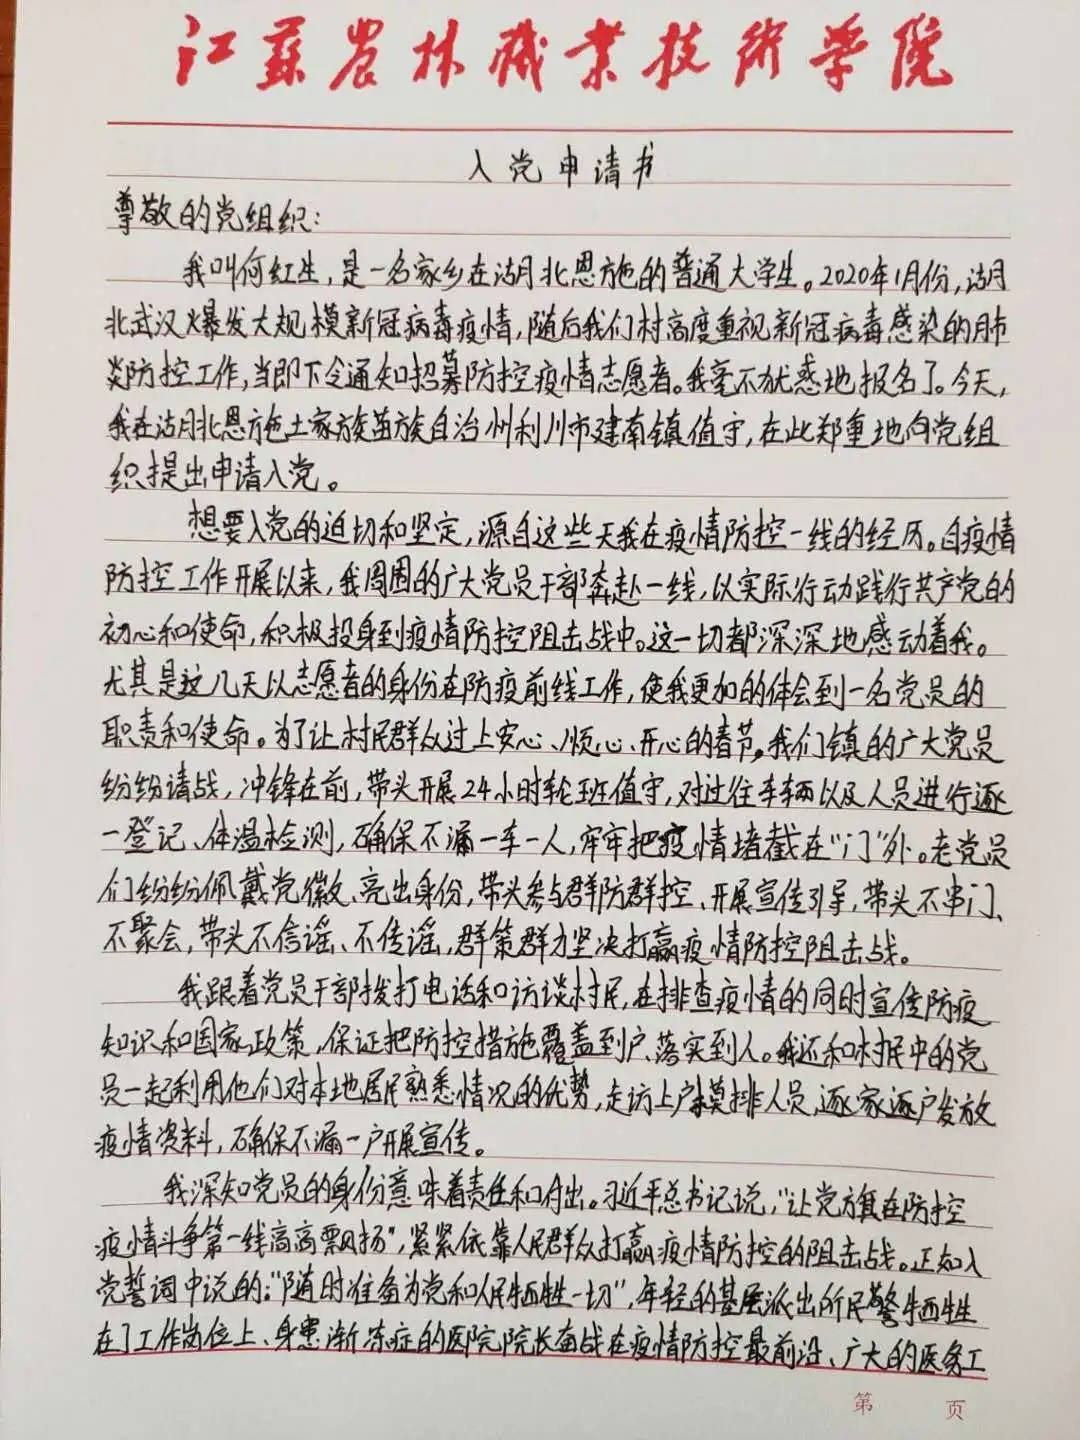 江苏农林职业技术学院
入党申请书
尊敬的党组织：
我叫何红生，是一名家乡在湖北恩施的普通大学生。2020年1月份，湖
北武汉火爆发大规模新冠病毒疫情，随后我们村高度重视新冠病毒感染的肺
炎防控工作，当即下令通知招募防控疫情志愿者。我毫不犹惑地报名了。今天，
我在湖北恩施土家族苗族自治州利川市建南镇值守，在此郑重地向党组
织提出申请入党。
想要入党的迫切和坚定，源自这些天我在疫情防控一线的经历。自疫情
防控工作开展以来，我周围的广大党员干部奔赴一线，以实际行动践行共产党的
初心和使命，积极投身到疫情防控阻击战中。这一切都深深地感动着我。
尤其是这几天以志愿者的身份在防疫前线工作，使我更加的体会到一名党员的
职责和使命。为了让村民群众过上安心、顺心、开心的春节，我们镇的广大党员
纷纷请战，冲锋在前，带头开展24小时轮班值守，对过往车辆以及人员进行逐
一登记、体温检测，确保不漏一车一人，牢牢把疫情堵截在“门”外。老党员
们纷纷佩戴党徽、亮出身份，带头参与群防群控、开展宣传引导，带头不串门、
不聚会，带头不信谣、不传谣，群策群力坚决打赢疫情防控阻击战。
我跟着党员干部拨打电话和访谈村民，在排查疫情的同时宣传防疫
知识和国家政策，保证把防控措施覆盖到户、落实到人。我还和村民中的党
员一起利用他们对本地居民熟悉情况的优势，走访上户摸排人员，逐家逐户发放
疫情资料，确保不漏一户开展宣传。
我深知党员的身份意味着责任和付出。习近平总书记说，“让党旗在防控
疫情斗争第一线高高飘扬”，紧紧依靠人民群众打赢疫情防控的阻击战。正如入
党誓词中说的：“随时准备为党和人民牺牲一切”，年轻的基层派出所民警牺牲
在了工作岗位上、身患渐冻症的医院院长奋战在疫情防控最前沿、广大的医务工
第 页